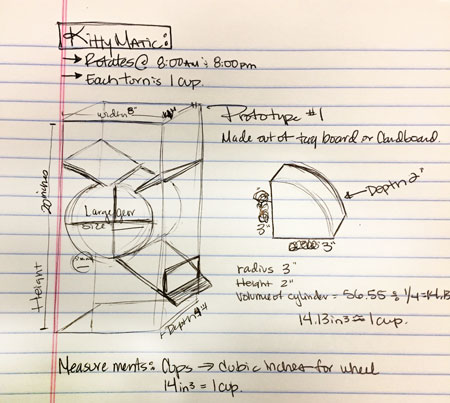 KittyMatic:
→ Rotates @ 8:00AM & 8:00pm
→ Each turn is 1 cup.
width 8"
4"
Prototype #1
Made out of tag board or Cardboard.
20 inches
Height
Large gear
size
Depth 4"
Depth 2"
3"
3"
radius 3"
Height 2"
Volume of cylinder = 56.55 & 1/4 = 14.13
14.13 in³ ≈ 1 cup.
Measurements: Cups → cubic inches for wheel
14 in³ = 1 cup.